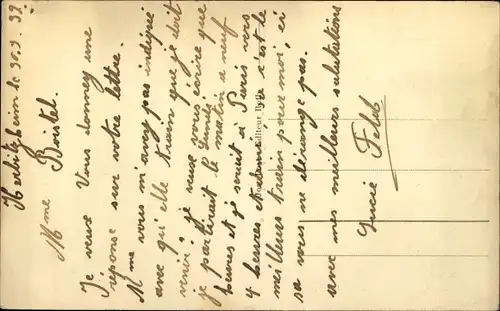 Herbitzheim le 30.9.32
Mme Boistel.
Je veux Vous donnez une
réponse sur votre lettre.
Mme vous m'avez pas indiqué
avec qu'elle train que je doit
venir; je veux vous écrire que
je partirait le lundi matin a neuf
heures et je serait à Paris vers
4 heures et demie c'est le
meilleurs train pour moi, si
sa vous ne dérange pas.
avec mes meilleurs salutations
Lucie
Editeur